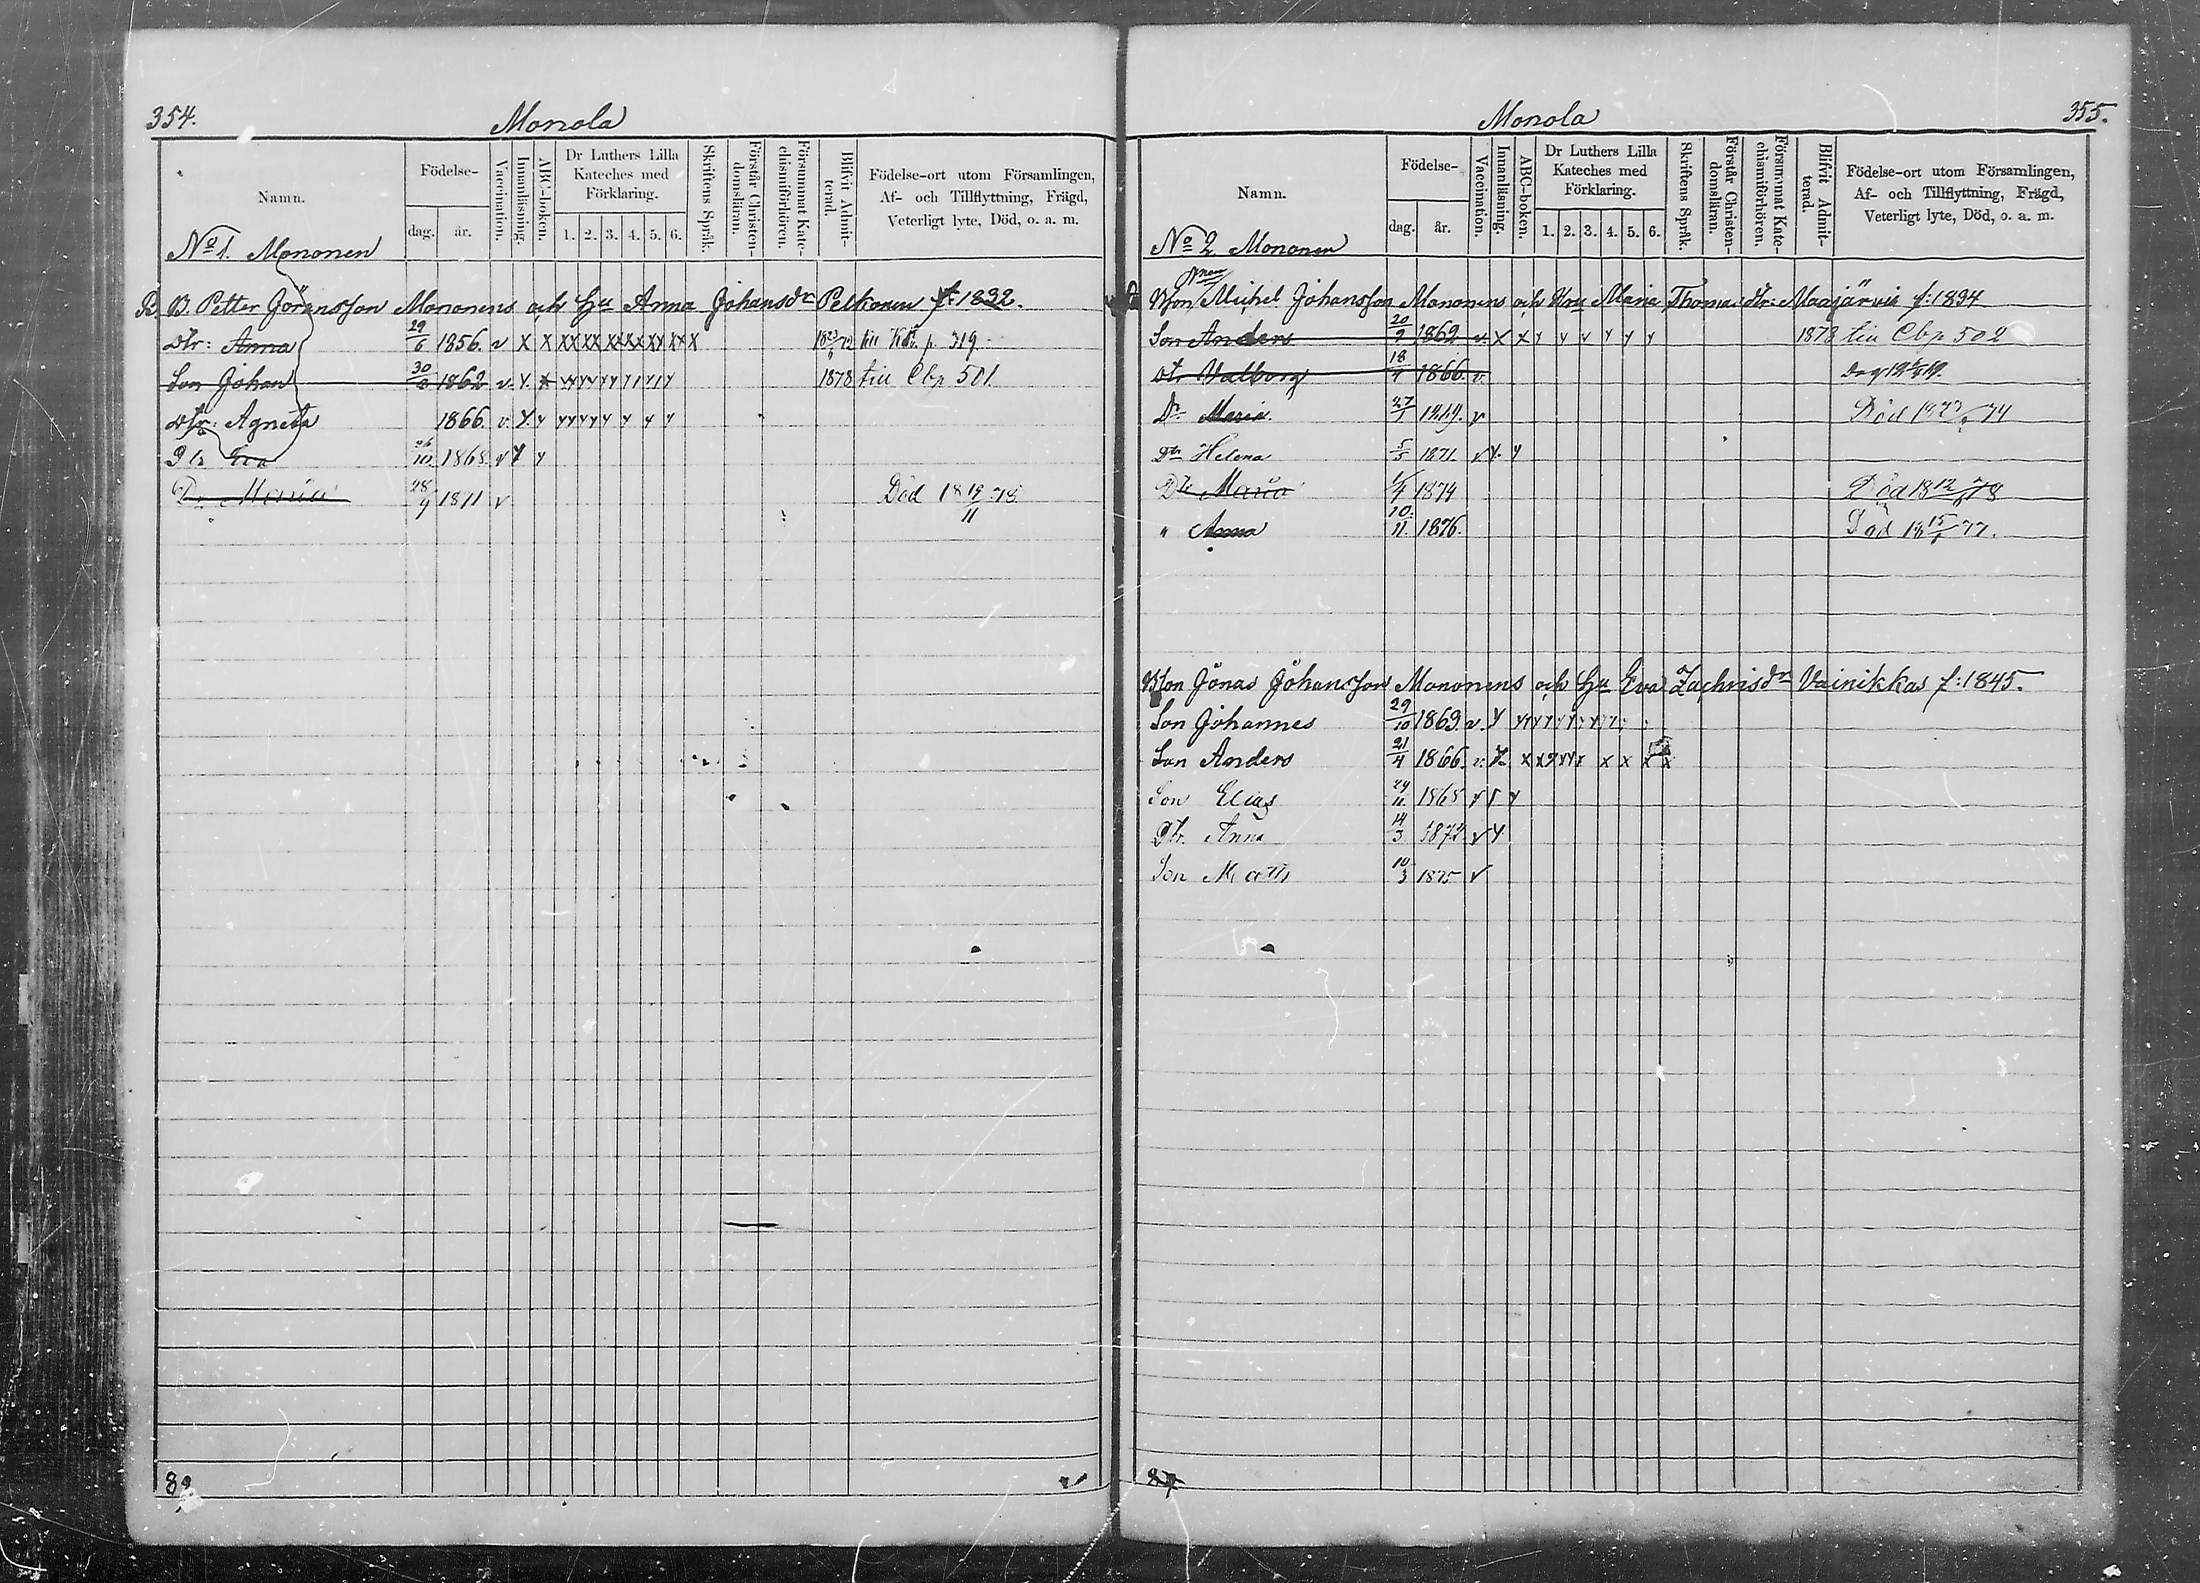 354.
Monola
Namn.
Födelse-
dag.
år.
Vaccination.
Innanläsning.
ABC-boken.
Dr Luthers Lilla
Kateches med
Förklaring.
1. 2. 3. 4. 5. 6.
Skriftens Språk.
Förstår Christen-
domsläran.
Försummat Kate-
chismiförhören.
Blifvit Admit-
terad.
Födelse-ort utom Församlingen,
Af- och Tillflyttning, Frägd,
Veterligt lyte, Död, o. a. m.
No 1. Mononen
B. Petter Göransson Mononens och Hu Anna Johansdr Pelkonen f: 1832.
dtr: Anna 29/6 1856. v X X XX XX XXXXX XX X
Son Johan 1862 v. 1878 till Cbp 501
dtr: Agneta 1866. v. Y. y yyyyy y y y y
Dtr Eva 10 1868 v Y y
Dr. Maria 28/9 1871 v Död 18 78
355.
Monola
Namn.
Födelse-
dag.
år.
Vaccination.
Innanläsning.
ABC-boken.
Dr Luthers Lilla
Kateches med
Förklaring.
1. 2. 3. 4. 5. 6.
Skriftens Språk.
Förstår Christen-
domsläran.
Försummat Kate-
chismiförhören.
Blifvit Admit-
terad.
Födelse-ort utom Församlingen,
Af- och Tillflyttning, Frägd,
Veterligt lyte, Död, o. a. m.
No 2. Mononen
Michel Johansson Mononens och Hru Maria Thomae dtr: Maajärvis f: 1834
Son Anders 20/9 1862 v. X X y y v y y y 1878 till Cbp 502
dtr Valborg 18 1866. v.
Dr Maria. 27 v Död 74
Dr Helena 5/5 1871 v y. y
Dtr Maria 1/4 1874 Död 18 12 78
" Anna 10/11. 1876. Död 18 15 77.
Bson Jonas Johansson Mononens och Hu Eva Zachrisdr Vainikkas f: 1845.
Son Johannes 29/10 1863. v. Y
Son Anders 21/4 1866. v.
Son Elias 1868 v
Dtr. Anna 14/3 1872 v Y
Son Matts 10/3 1875 v